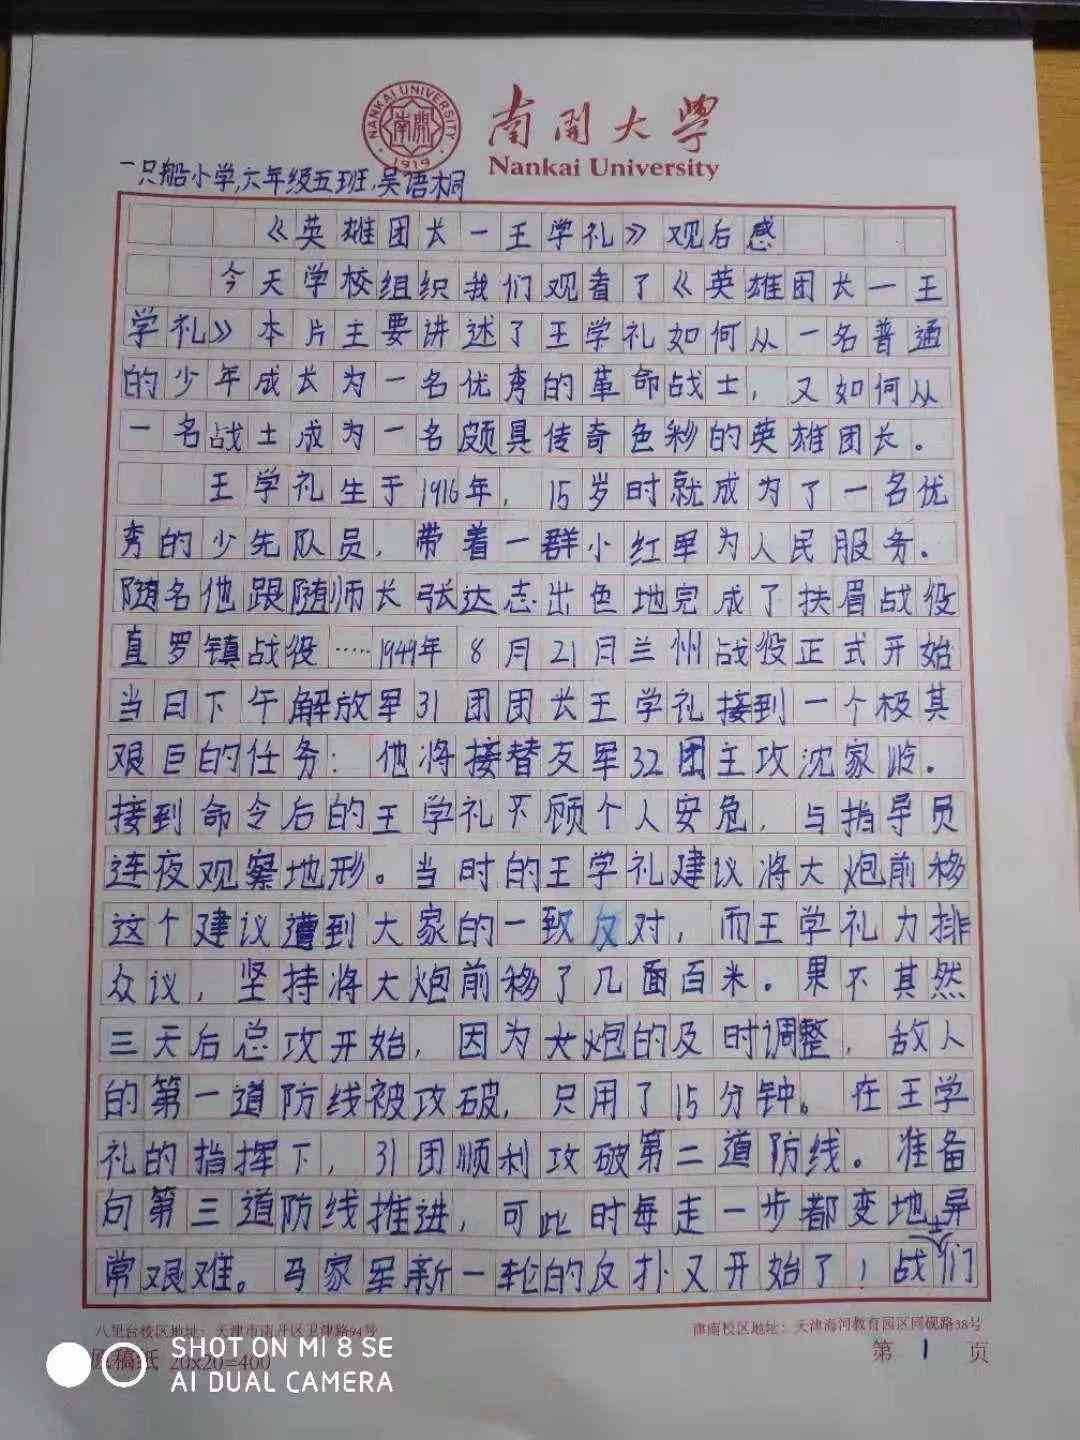 NANKAI UNIVERSITY
南開
1919
南開大學
Nankai University
一只船小学,六年级五班,吴语桐
《英雄团长一王学礼》观后感
今天学校组织我们观看了《英雄团长一王
学礼》本片主要讲述了王学礼如何从一名普通
的少年成长为一名优秀的革命战士，又如何从
一名战士成为一名颇具传奇色彩的英雄团长。
王学礼生于1916年，15岁时就成为了一名优
秀的少先队员，带着一群小红军为人民服务。
随名他跟随师长张达志出色地完成了扶眉战役
直罗镇战役……1949年8月21日兰州战役正式开始
当日下午解放军31团团长王学礼接到一个极其
艰巨的任务：他将接替友军32团主攻沈家岭。
接到命令后的王学礼不顾个人安危，与指导员
连夜观察地形。当时的王学礼建议将大炮前移
这个建议遭到大家的一致反对，而王学礼力排
众议，坚持将大炮前移了几面百米。果不其然
三天后总攻开始，因为大炮的及时调整，敌人
的第一道防线被攻破，只用了15分钟。在王学
礼的指挥下，31团顺利攻破第二道防线。准备
向第三道防线推进，可此时每走一步都变地异
常艰难。马家军新一轮的反扑又开始了！战士们
八里台校区地址：天津市南开区卫津路94号
津南校区地址：天津海河教育园区同砚路38号
原稿纸 20x20=400
第 1 页
SHOT ON MI 8 SE
AI DUAL CAMERA